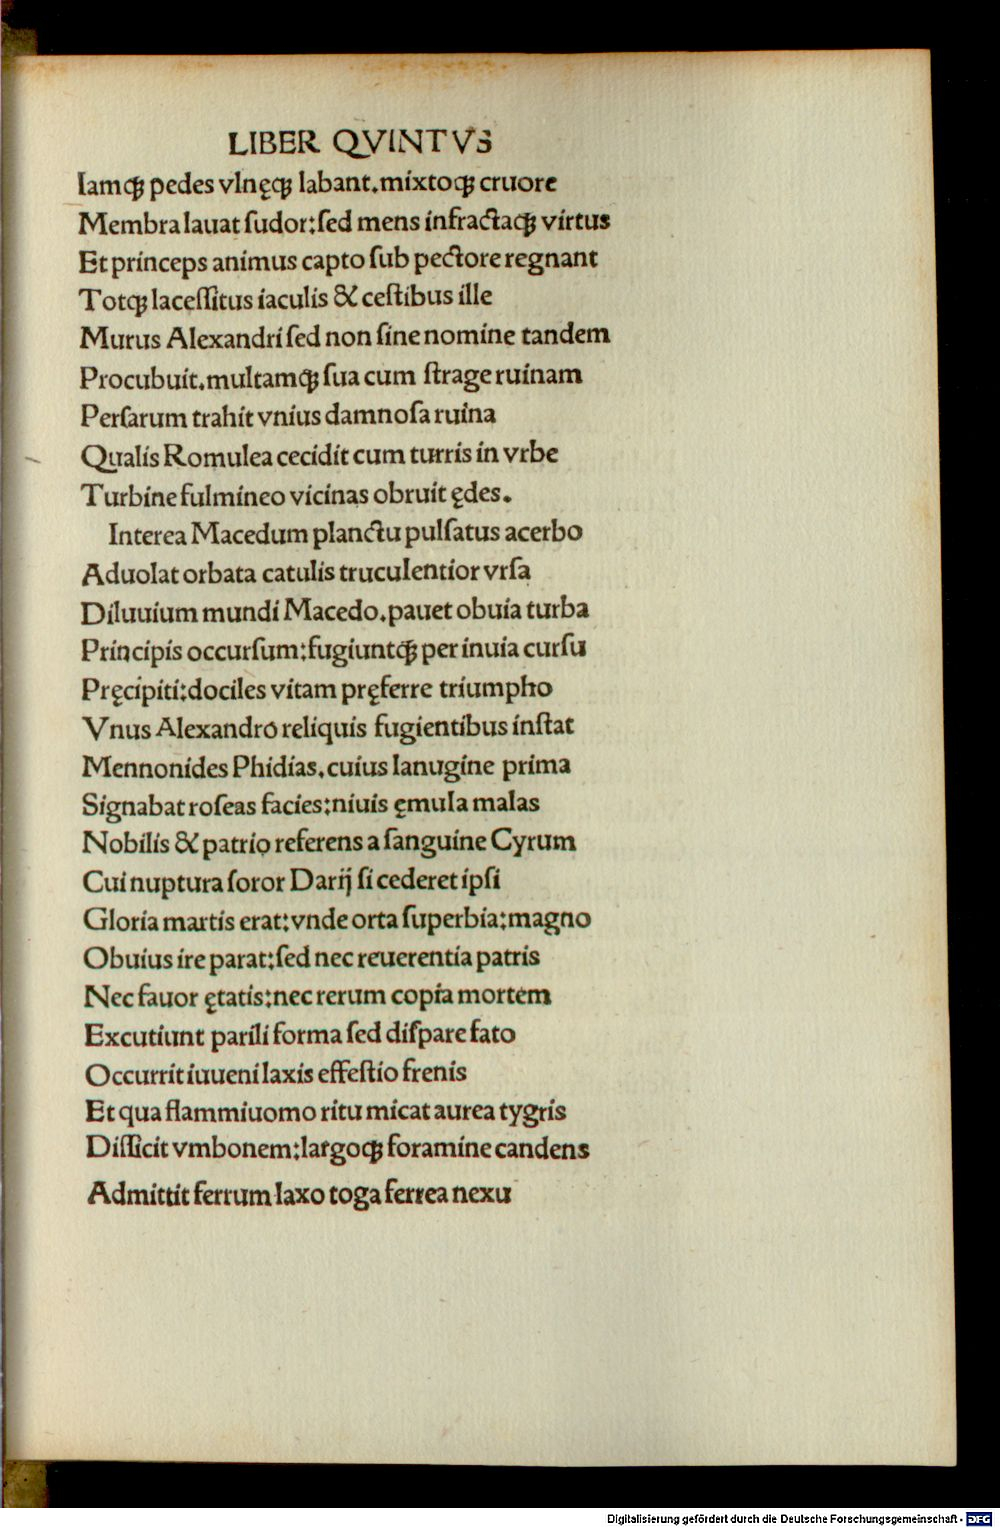 LIBER QVINTVS
Iamqꝫ pedes vlnęqꝫ labant.mixtoqꝫ cruore
Membra lauat ſudor:ſed mens infractaqꝫ virtus
Et princeps animus capto ſub pectore regnant
Totqꝫ laceſſitus iaculis & ceſtibus ille
Murus Alexandri ſed non ſine nomine tandem
Procubuit.multamqꝫ ſua cum ſtrage ruinam
Perſarum trahit vnius damnoſa ruina
Qualis Romulea cecidit cum turris in vrbe
Turbine fulmineo vicinas obruit ędes.
Interea Macedum planctu pulſatus acerbo
Aduolat orbata catulis truculentior vrſa
Diluuium mundi Macedo.pauet obuia turba
Principis occurſum:fugiuntqꝫ per inuia curſu
Pręcipiti:dociles vitam pręferre triumpho
Vnus Alexandro reliquis fugientibus inſtat
Mennonides Phidias.cuius lanugine prima
Signabat roſeas facies:niuis ęmula malas
Nobilis & patrio referens a ſanguine Cyrum
Cui nuptura ſoror Darij ſi cederet ipſi
Gloria martis erat:vnde orta ſuperbia:magno
Obuius ire parat:ſed nec reuerentia patris
Nec fauor ętatis:nec rerum copia mortem
Excutiunt parili forma ſed diſpare fato
Occurrit iuueni laxis effeſtio frenis
Et qua flammiuomo ritu micat aurea tygris
Diſſicit vmbonem:largoqꝫ foramine candens
Admittit ferrum laxo toga ferrea nexu
Digitalisierung gefördert durch die Deutsche Forschungsgemeinschaft - DFG